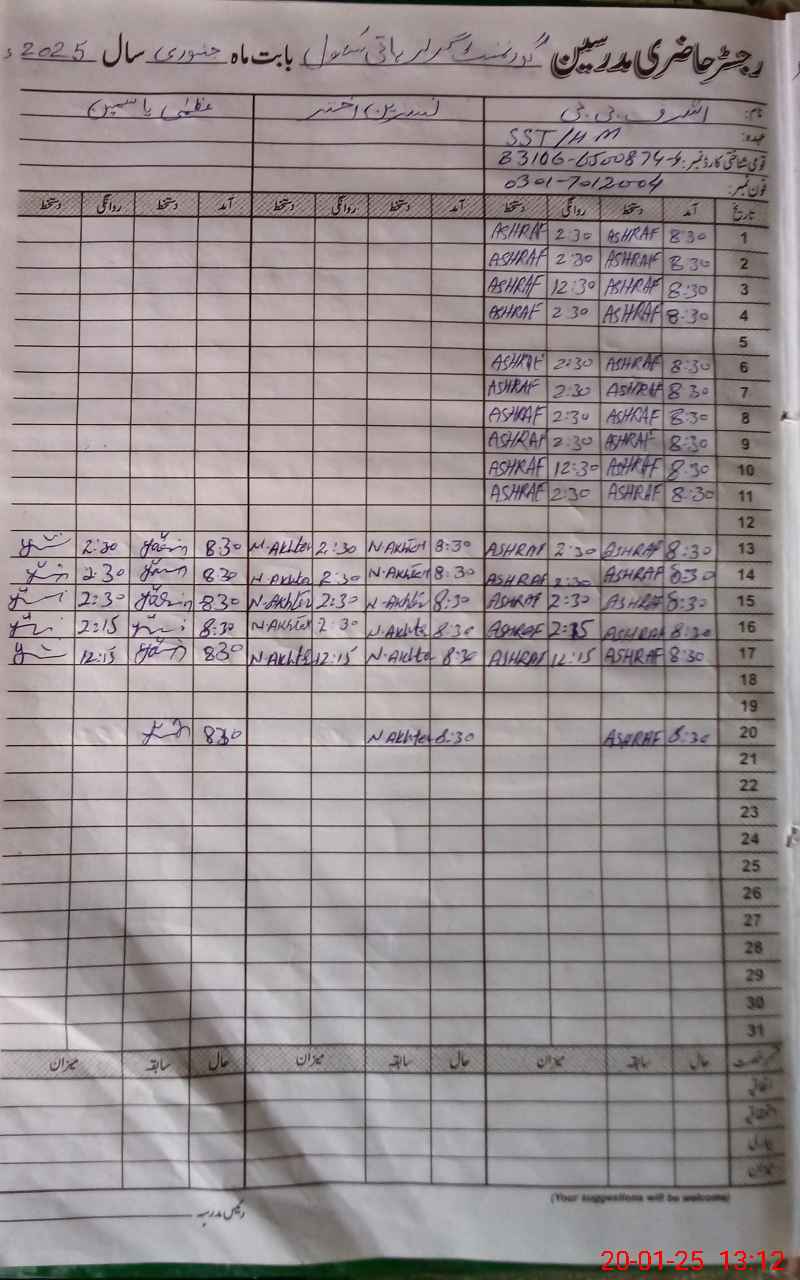 رجسٹر حاضری مدرسین گورنمنٹ گرلز ہائی سکول بابت ماہ جنوری سال 2025ء
نام: اشرف بی بی نسرین اختر عظمیٰ یاسمین
عہدہ: SST/HM
قومی شناختی کارڈ نمبر:
فون نمبر: 0301-7012004
تاریخ آمد دستخط روانگی دستخط آمد دستخط روانگی دستخط آمد دستخط روانگی دستخط
1 8:30 ASHRAF 2:30 ASHRAF
2 8:30 ASHRAF 2:30 ASHRAF
3 8:30 ASHRAF 12:30 ASHRAF
4 8:30 ASHRAF 2:30 ASHRAF
5
6 8:30 ASHRAF 2:30 ASHRAF
7 8:30 ASHRAF 2:30 ASHRAF
8 8:30 ASHRAF 2:30 ASHRAF
9 8:30 ASHRAF 2:30 ASHRAF
10 8:30 ASHRAF 12:30 ASHRAF
11 8:30 ASHRAF 2:30 ASHRAF
12
13 8:30 ASHRAF 2:30 ASHRAF 8:30 N-Akhter 2:30 N-Akhter 8:30 2:30
14 8:30 ASHRAF 2:30 ASHRAF 8:30 N-Akhter 2:30 N-Akhter 8:30 2:30
15 8:30 ASHRAF 2:30 ASHRAF 8:30 N-Akhter 2:30 N-Akhter 8:30 2:30
16 8:30 ASHRAF 2:15 ASHRAF 8:30 N-Akhter 2:30 N-Akhter 8:30 2:15
17 8:30 ASHRAF 12:15 ASHRAF 8:30 N-Akhter 12:15 N-Akhter 8:30 12:15
18
19
20 8:30 ASHRAF 8:30 N-Akhter 8:30
21
22
23
24
25
26
27
28
29
30
31
حال سابقہ میزان حال سابقہ میزان حال سابقہ میزان
اتفاقیہ
میزان
(Your suggestions will be welcome)
رئیس مدرسہ
20-01-25 13:12